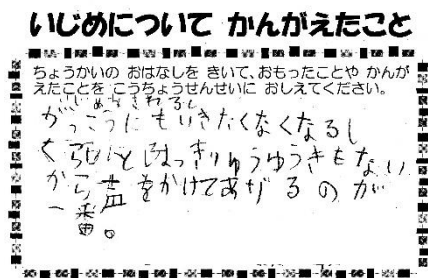 いじめについて かんがえたこと
ちょうかいの おはなしを きいて、おもったことや かんが
えたことを こうちょうせんせいに おしえてください。
がっこうにもいきたくなくなるし
とはっきりゆうゆうきもない
から声をかけてあげるのが
一番。